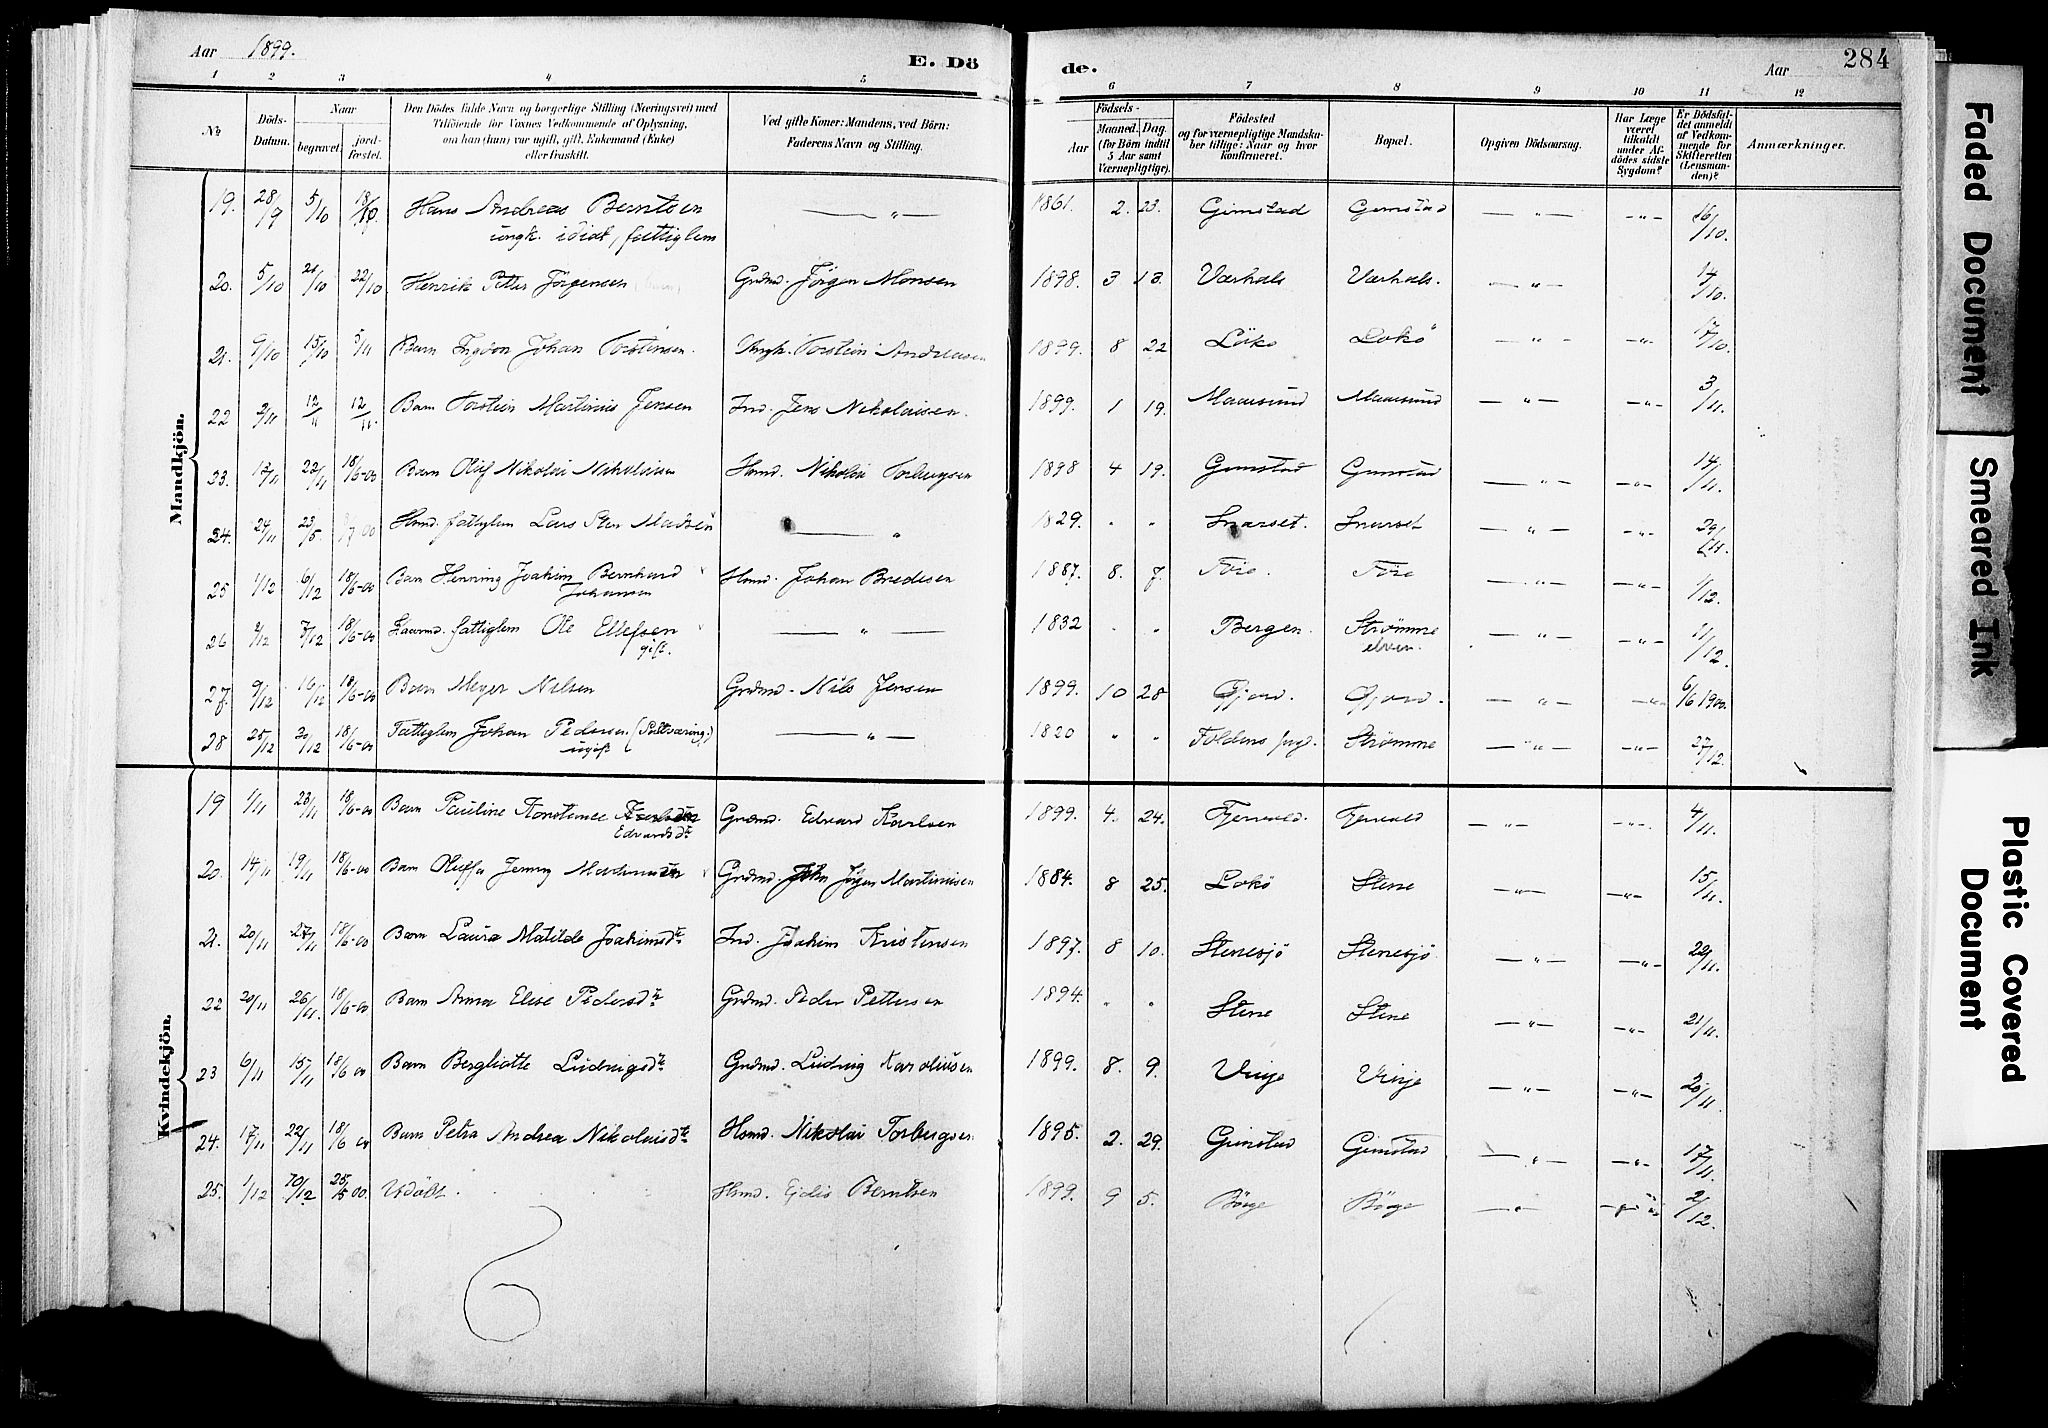 Aar 1899.
E. Dö
de.
Aar
284
1 2 3 4 5 6 7 8 9 10 11 12
No
Döds-Datum.
Naar
begravet.
jord-fæstet.
Den Dödes fulde Navn og borgerlige Stilling (Næringsvei) med
Tilföiende for Voxnes Vedkommende af Oplysning,
om han (hun) var ugift, gift, Enkemand (Enke)
eller fraskilt.
Ved gifte Koner: Mandens, ved Börn:
Faderens Navn og Stilling.
Födsels-
Aar
Maaned. Dag.
(for Börn indtil
5 Aar samt
Værnepligtige).
Födested
og for værnepligtige Mandska-
ber tillige: Naar og hvor
konfirmeret.
Bopæl.
Opgiven Dödsaarsag.
Har Læge
været
tilkaldt
under Af-
dödes sidste
Sygdom?
Er Dödsfal-
det anmeldt
af Vedkom-
mende for
Skifteretten
(Lensman-
den)?
Anmærkninger.
Mandkjön.
19. 28/9 5/10 Hans Andreas Berntsen — " — 1861. 2. 23. Gimstad Gimstad — " — — " — 16/10.
ungk. idiot, fattiglem
20. 5/10 21/10 22/10 Henrik Petter Jörgensen Grdmd. Jörgen Monsen 1898. 3 13. Værhals Værhals. — " — 14/10.
21. 9/10 15/10 5/11 Barn Johan Torstinsen. Ungk. Torstein Andreasen 1899. 8 22 Lökö Lokö — " — — " — 17/10.
22 2/11 12/11 12/11 Barn Torstein Martinius Jensen Ind. Jens Nikolaisen. 1899. 1 19. Maarsund Maarsund — " — — " — 3/11.
23. 12/11 22/11 18/6-00 Barn Olaf Nikolai Nikolaisen Hsmd. Nikolai Torbergsen 1898 4 19. Gimstad Gimstad — " — — " — 14/11.
24. 24/11 23/5. Hsmd. fattiglem Lars Madsen — " 1829. " " Snarset. Snarset — " — — " — 29/11.
25 1/12 6/12 18/6-00 Barn Henning Joakim Bernhard Hsmd. Johan Bredesen 1887. 8. 7. Före. Före — " — — " — 1/12.
Johansen
26 2/12 7/12 18/6-00 fattiglem Ole Ellefsen — " — 1832 " " Bergen. Strömme — " — — " — 11/12.
gift.
elven.
27. 9/12 16/12 18/6-00 Barn Meyer Nilsen Grdmd. Nils Jensen 1899. 10 28 Gjord. Gjord. — " — — " — 6/6 1900.
28 25/12 30/12 18/6-00 Fattiglem Johan Pedersen (Saltværing.) — " — 1820 " " Foldens pgd. Strömme — " — — " — 27/12.
ugift
Kvindekjön.
19 1/11 23/11 18/6-00 Barn Pauline Konstanse Grdmd. Edvard Karlsen 1899. 4. 24. Fjervold. Fjervold — " — — " — 4/11.
Edvardsdtr
20. 14/11 19/11 18/6-00 Barn Oluffa Jenny Grdmd. Jörgen Martiniusen 1884. 8 25. Lokö Stene — " — — " — 15/11.
21. 20/11 27/11 18/6-00 Barn Laura Matilde Joakimsdtr Ind. Joakim Kristensen 1897. 8 10. Stenesjö Stenesjö — " — — " — 22/11.
22 20/11 26/11. 18/6-00 Barn Anna Elise Pedersdtr Grdmd. Peder Pettersen 1894. " " Stene Stene — " — — " — 21/11.
23 6/11 15/11 18/6 00 Barn Bergliotte Ludvigsdtr Grdmd. Ludvig Karoliusen 1899. 8. 9. Vinje Vinje — " — — " — 20/11.
24. 17/11 22/11 18/6 00 Barn Petra Andrea Nikolaisdtr Hsmd. Nikolai Torbergsen 1895. 2. 29. Gimstad Gimstad — " — — " — 17/11.
25. 1/12 10/12 25/5 00. Udöbt. Hsmd. Ejdis Berntsen 1899. 9 5. Böge Böge — " — — " — 2/12.
Faded Document
Smeared Ink
Plastic Covered Document